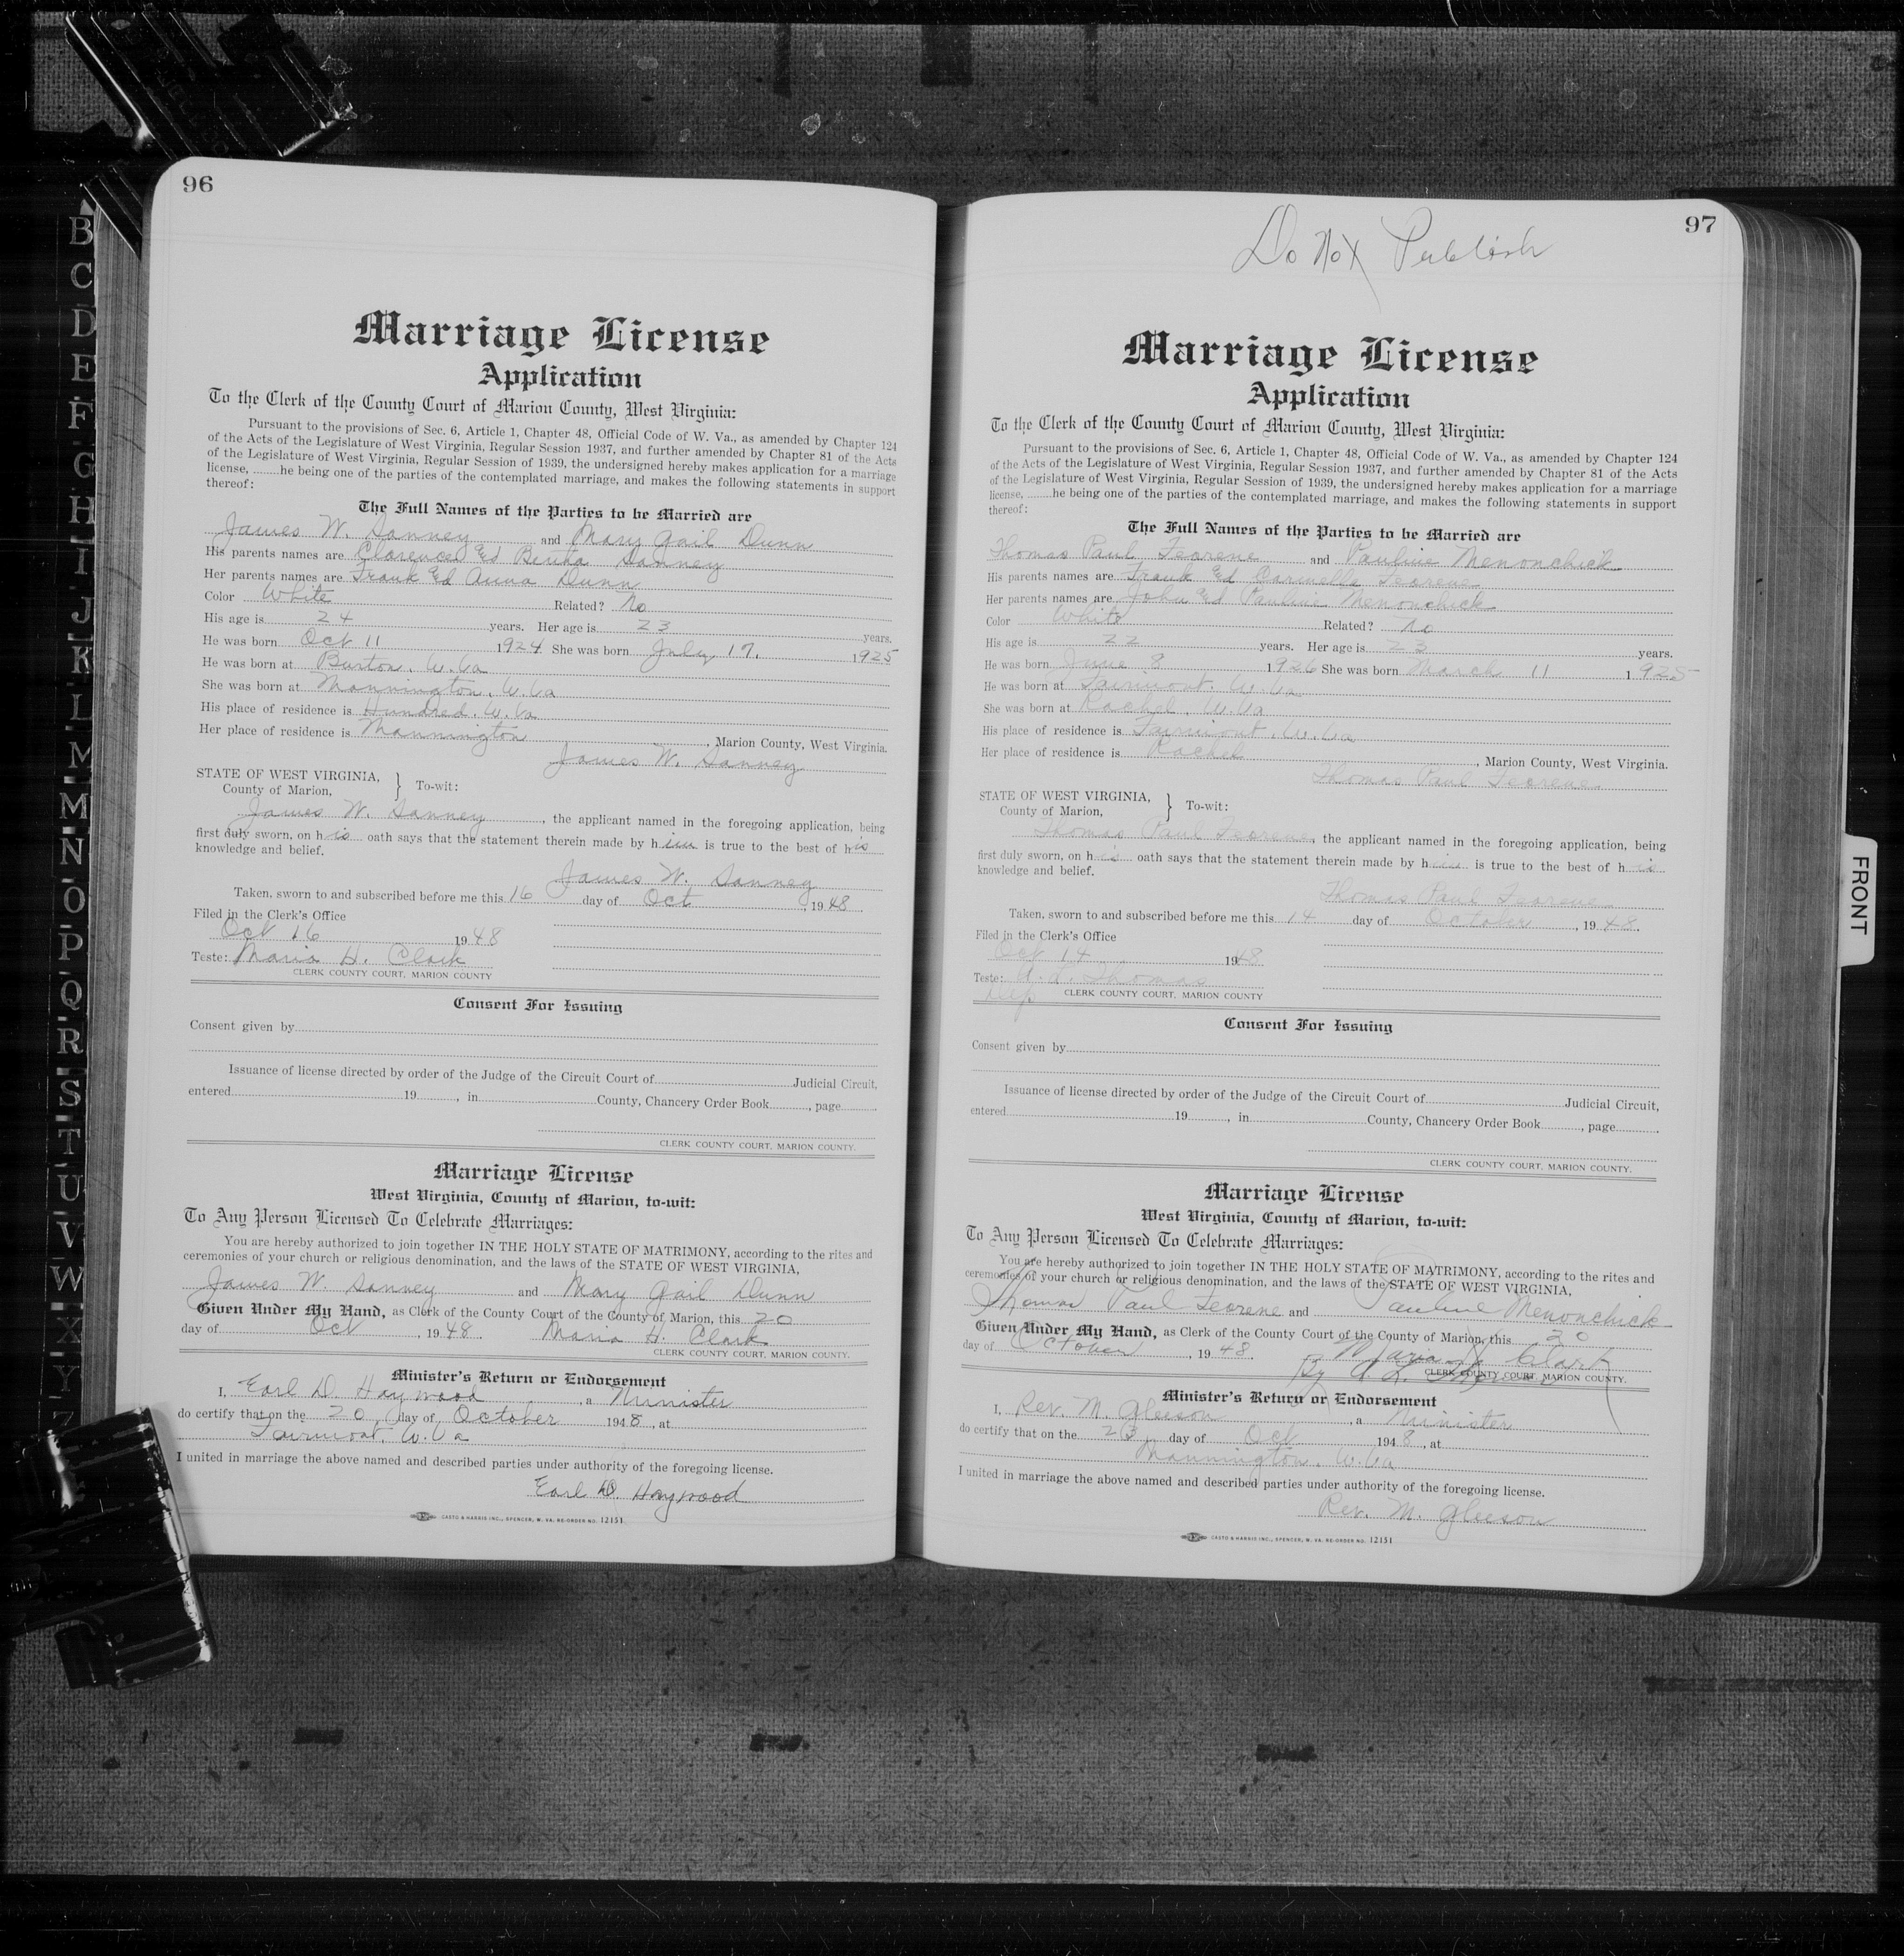 96
Marriage License
Application
To the Clerk of the County Court of Marion County, West Virginia:
Pursuant to the provisions of Sec. 6, Article 1, Chapter 48, Official Code of W. Va., as amended by Chapter 124
of the Acts of the Legislature of West Virginia, Regular Session 1937, and further amended by Chapter 81 of the Acts
of the Legislature of West Virginia, Regular Session of 1939, the undersigned hereby makes application for a marriage
license, ........he being one of the parties of the contemplated marriage, and makes the following statements in support
thereof:
The Full Names of the Parties to be Married are
James W. and Mary Gail Dunn
His parents names are Clarence Ed Bertha
Her parents names are Frank Ed Anna Dunn
Color White Related? No
His age is 24 years. Her age is 23 years.
He was born Oct 11 1924 She was born July 17, 1925
He was born at Burton, W. Va
She was born at Mannington, W. Va
His place of residence is Hundred, W. Va
Her place of residence is Mannington, Marion County, West Virginia.
James W.
STATE OF WEST VIRGINIA,
County of Marion, } To-wit:
James W. , the applicant named in the foregoing application, being
first duly sworn, on his oath says that the statement therein made by him is true to the best of his
knowledge and belief.
James W.
Taken, sworn to and subscribed before me this 16 day of Oct, 1948.
Filed in the Clerk's Office
Oct 16 1948
Teste: Maria H. Clark
CLERK COUNTY COURT, MARION COUNTY
Consent For Issuing
Consent given by
Issuance of license directed by order of the Judge of the Circuit Court of Judicial Circuit,
entered 19 , in County, Chancery Order Book , page
CLERK COUNTY COURT, MARION COUNTY.
Marriage License
West Virginia, County of Marion, to-wit:
To Any Person Licensed To Celebrate Marriages:
You are hereby authorized to join together IN THE HOLY STATE OF MATRIMONY, according to the rites and
ceremonies of your church or religious denomination, and the laws of the STATE OF WEST VIRGINIA,
James W. and Mary Gail Dunn
Given Under My Hand, as Clerk of the County Court of the County of Marion, this 20
day of Oct, 1948. Maria H. Clark
CLERK COUNTY COURT, MARION COUNTY.
Minister's Return or Endorsement
I, Earl D. Haywood, a Minister
do certify that on the 20 day of October 1948, at
Fairmont, W. Va
I united in marriage the above named and described parties under authority of the foregoing license.
Earl D. Haywood
CASTO & HARRIS INC., SPENCER, W. VA. RE-ORDER NO. 12151
97
Do Not Publish
Marriage License
Application
To the Clerk of the County Court of Marion County, West Virginia:
Pursuant to the provisions of Sec. 6, Article 1, Chapter 48, Official Code of W. Va., as amended by Chapter 124
of the Acts of the Legislature of West Virginia, Regular Session 1937, and further amended by Chapter 81 of the Acts
of the Legislature of West Virginia, Regular Session of 1939, the undersigned hereby makes application for a marriage
license, ........he being one of the parties of the contemplated marriage, and makes the following statements in support
thereof:
The Full Names of the Parties to be Married are
Thomas Paul Teorene and Pauline Menonchick
His parents names are Frank Ed Carmella Teorene
Her parents names are John Ed Pauline Menonchick
Color White Related? No
His age is 22 years. Her age is 23 years.
He was born June 8 1926 She was born March 11 1925
He was born at Fairmont, W. Va
She was born at Rachel, W. Va
His place of residence is Fairmont, W. Va
Her place of residence is Rachel, Marion County, West Virginia.
Thomas Paul Teorene
STATE OF WEST VIRGINIA,
County of Marion, } To-wit:
Thomas Paul Teorene, the applicant named in the foregoing application, being
first duly sworn, on his oath says that the statement therein made by him is true to the best of his
knowledge and belief.
Thomas Paul Teorene
Taken, sworn to and subscribed before me this 14 day of October, 1948.
Filed in the Clerk's Office
Oct 14 1948
Teste: A. L. Thomas
Dep. CLERK COUNTY COURT, MARION COUNTY
Consent For Issuing
Consent given by
Issuance of license directed by order of the Judge of the Circuit Court of Judicial Circuit,
entered 19 , in County, Chancery Order Book , page
CLERK COUNTY COURT, MARION COUNTY.
Marriage License
West Virginia, County of Marion, to-wit:
To Any Person Licensed To Celebrate Marriages:
You are hereby authorized to join together IN THE HOLY STATE OF MATRIMONY, according to the rites and
ceremonies of your church or religious denomination, and the laws of the STATE OF WEST VIRGINIA,
Thomas Paul Teorene and Pauline Menonchick
Given Under My Hand, as Clerk of the County Court of the County of Marion, this 20
day of October, 1948. Maria H. Clark
By A. L. Thomas CLERK COUNTY COURT, MARION COUNTY.
Minister's Return or Endorsement
I, Rev. M. Gleeson, a Minister
do certify that on the 23 day of Oct 1948, at
Mannington, W. Va
I united in marriage the above named and described parties under authority of the foregoing license.
Rev. M. Gleeson
CASTO & HARRIS INC., SPENCER, W. VA. RE-ORDER NO. 12151
B
C
D
E
F
G
H
I
J
K
L
M
N
O
P
Q
R
S
T
U
V
W
X
Y
Z
FRONT